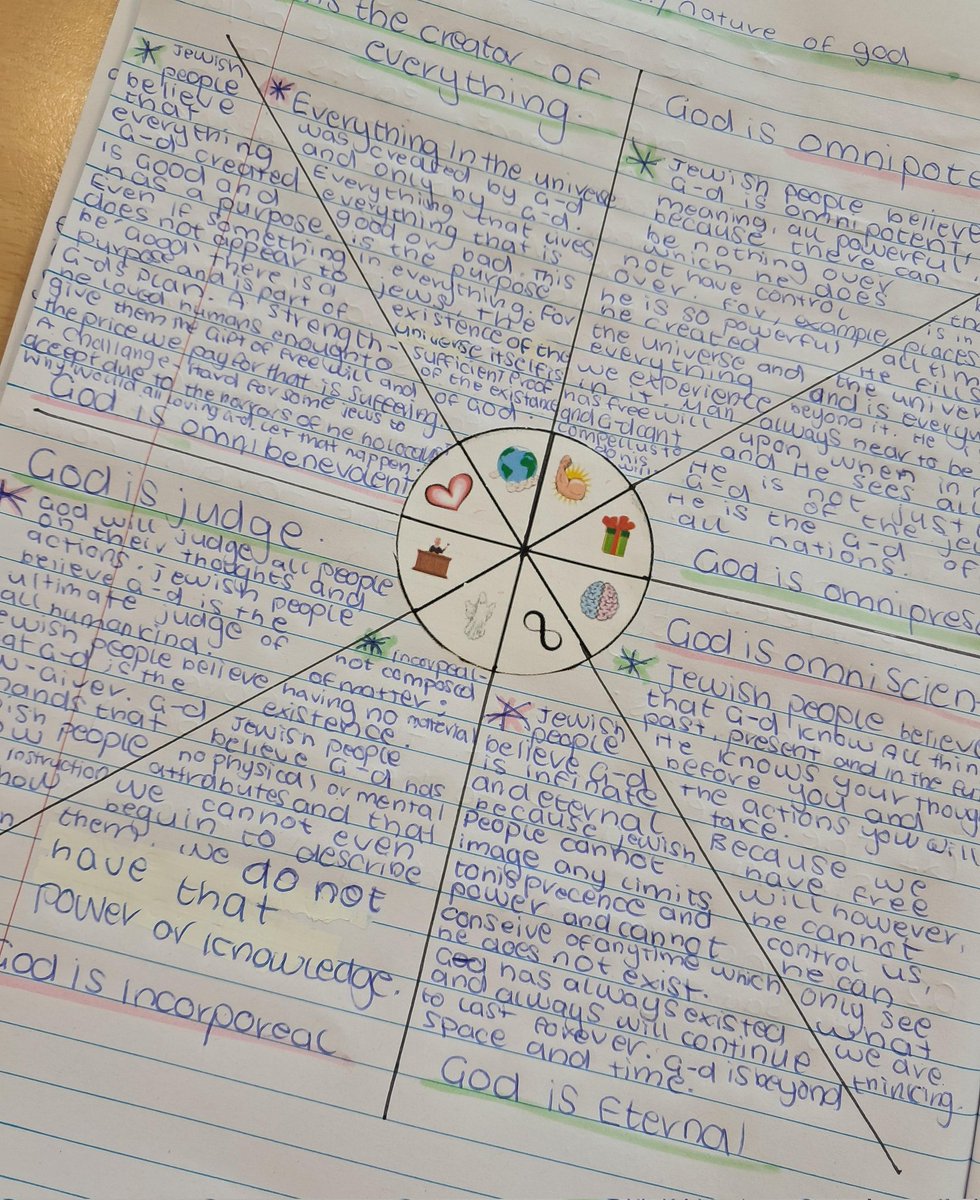 nature of god
is the creator of
everything.
Jewish
people
believe
that
everything
G-d created
is Good and
has a purpose
Even if something
does not appear to
be good, there is a
purpose and is part of
G-ds plan. A strength-
he loved humans enough to
give them the Gift of free will and
the price we pay for that is suffering
A challange- Hard for some Jews to
accept due to the horrors of he holocaust
why would all loving G-d let that happen?
God is omnibenevolent
Everything in the universe
was created by G-d
and only by G-d.
Everything that lives
everything that is
good or bad. This
is the purpose
in everything. For
Jews the
existence of the
universe itself is
sufficient proof
of the existance
of God.
God is omnipote
Jewish people believe
G-d is omnipotent
meaning, all powerful
because there can
be nothing over
which he does
not have control
over. For example
he is so powerful
he created
the universe and
everything
we experience
in it. Man
has free will
and G-d cant
is in
places
all tim
He fills
the univer
and is everyw
beyond it. He
always near to be
upon when in
and He sees all
He is not just
G-d of the Je
He is the G-d of
all nations.
God is omnipres
God is judge.
God will judge all people
on their thoughts and
actions. Jewish people
believe G-d is the
ultimate judge of
all humankind
ewish people believe
at G-d is the
w-giver. G-d
mands that
ish people
ow
instruction
how
Incorpeal-
not composed
of matter.
having no material
existence.
Jewish people
believe G-d has
no physical or mental
attrobutes and that
we cannot even
beguin to describe
them. We do not
have that
power or knowledge.
God is incorporeal
Jewish
people
believe G-d
is infinate
and eternal
because Jewish
people cannot
image any limits
to his precence and
power and cannot
conseive of anytime which
he does not exist.
God has always existed
and always will continue
to last forever. G-d is beyond
space and time.
God is Eternal
God is omniscien
Jewish people believ
that G-d know All thin
past, present and in the fut
He knows your though
before you and
the actions you will
take.
Because we
have free
will however,
he cannot
control us,
he can
only see
what
we are
thinking.